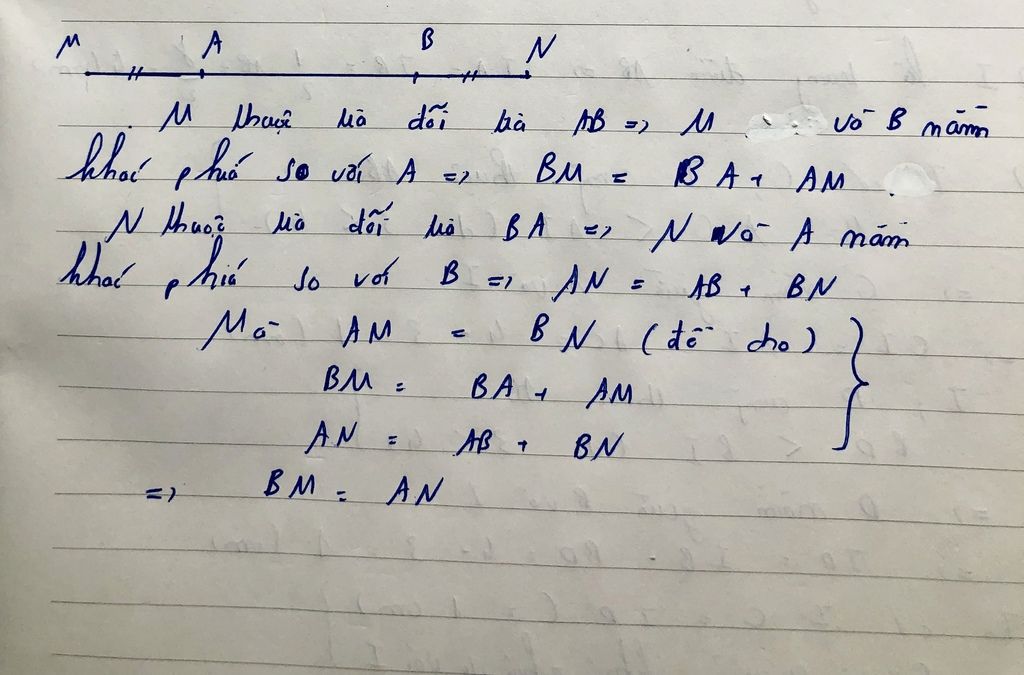 M A B N
M thuộc tia đối tia AB => M và B nằm
khác phía so với A => BM = BA + AM
N thuộc tia đối tia BA => N và A nằm
khác phía so với B => AN = AB + BN
Mà AM = BN (đề cho)
BM = BA + AM
AN = AB + BN
=> BM = AN